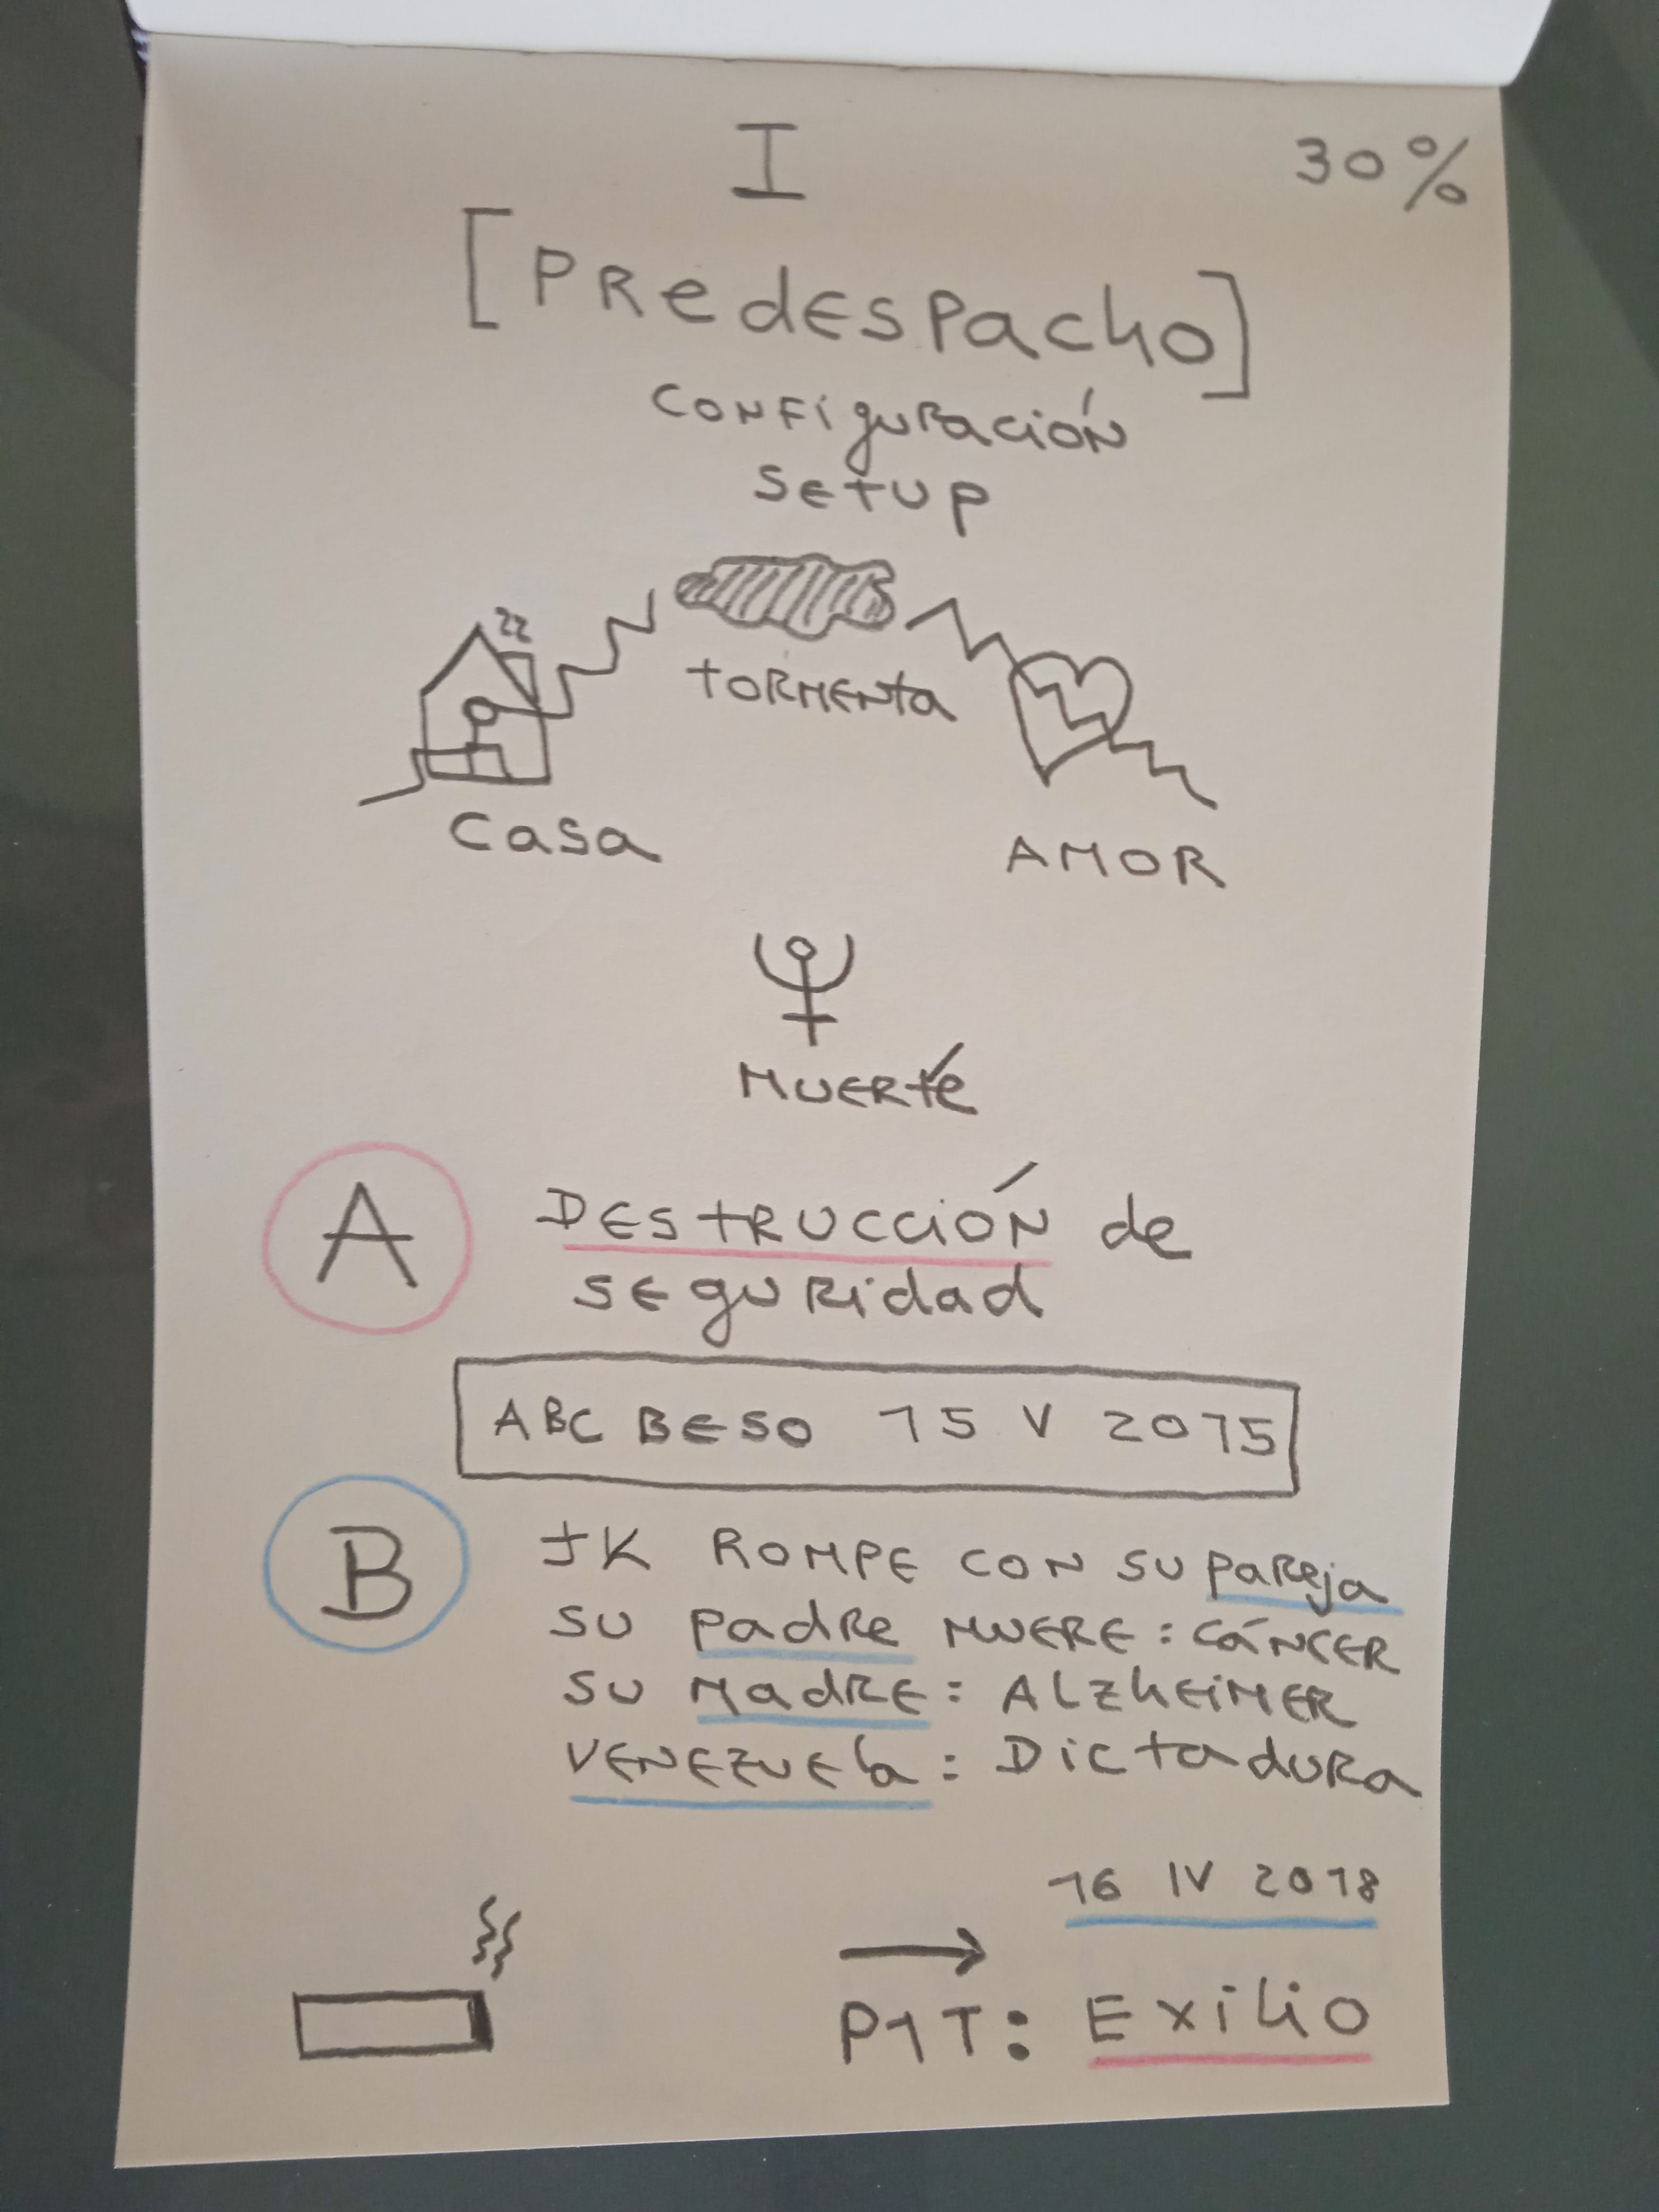 I
30%
[PRedESPacho]
CONFiguRación
SETUP
TORMENta
Casa
AMOR
MUERtÉ
A
DEStRUCCiÓN de
SEguRidad
ABC BESO 15 V 2015
B
JK ROMPE CON SU PaReja
SU PadRE MUERE: CáNCER
SU MadRE: AlzhEiMER
VENEZUEla: DictaduRa
16 IV 2018
P1T: Exilio